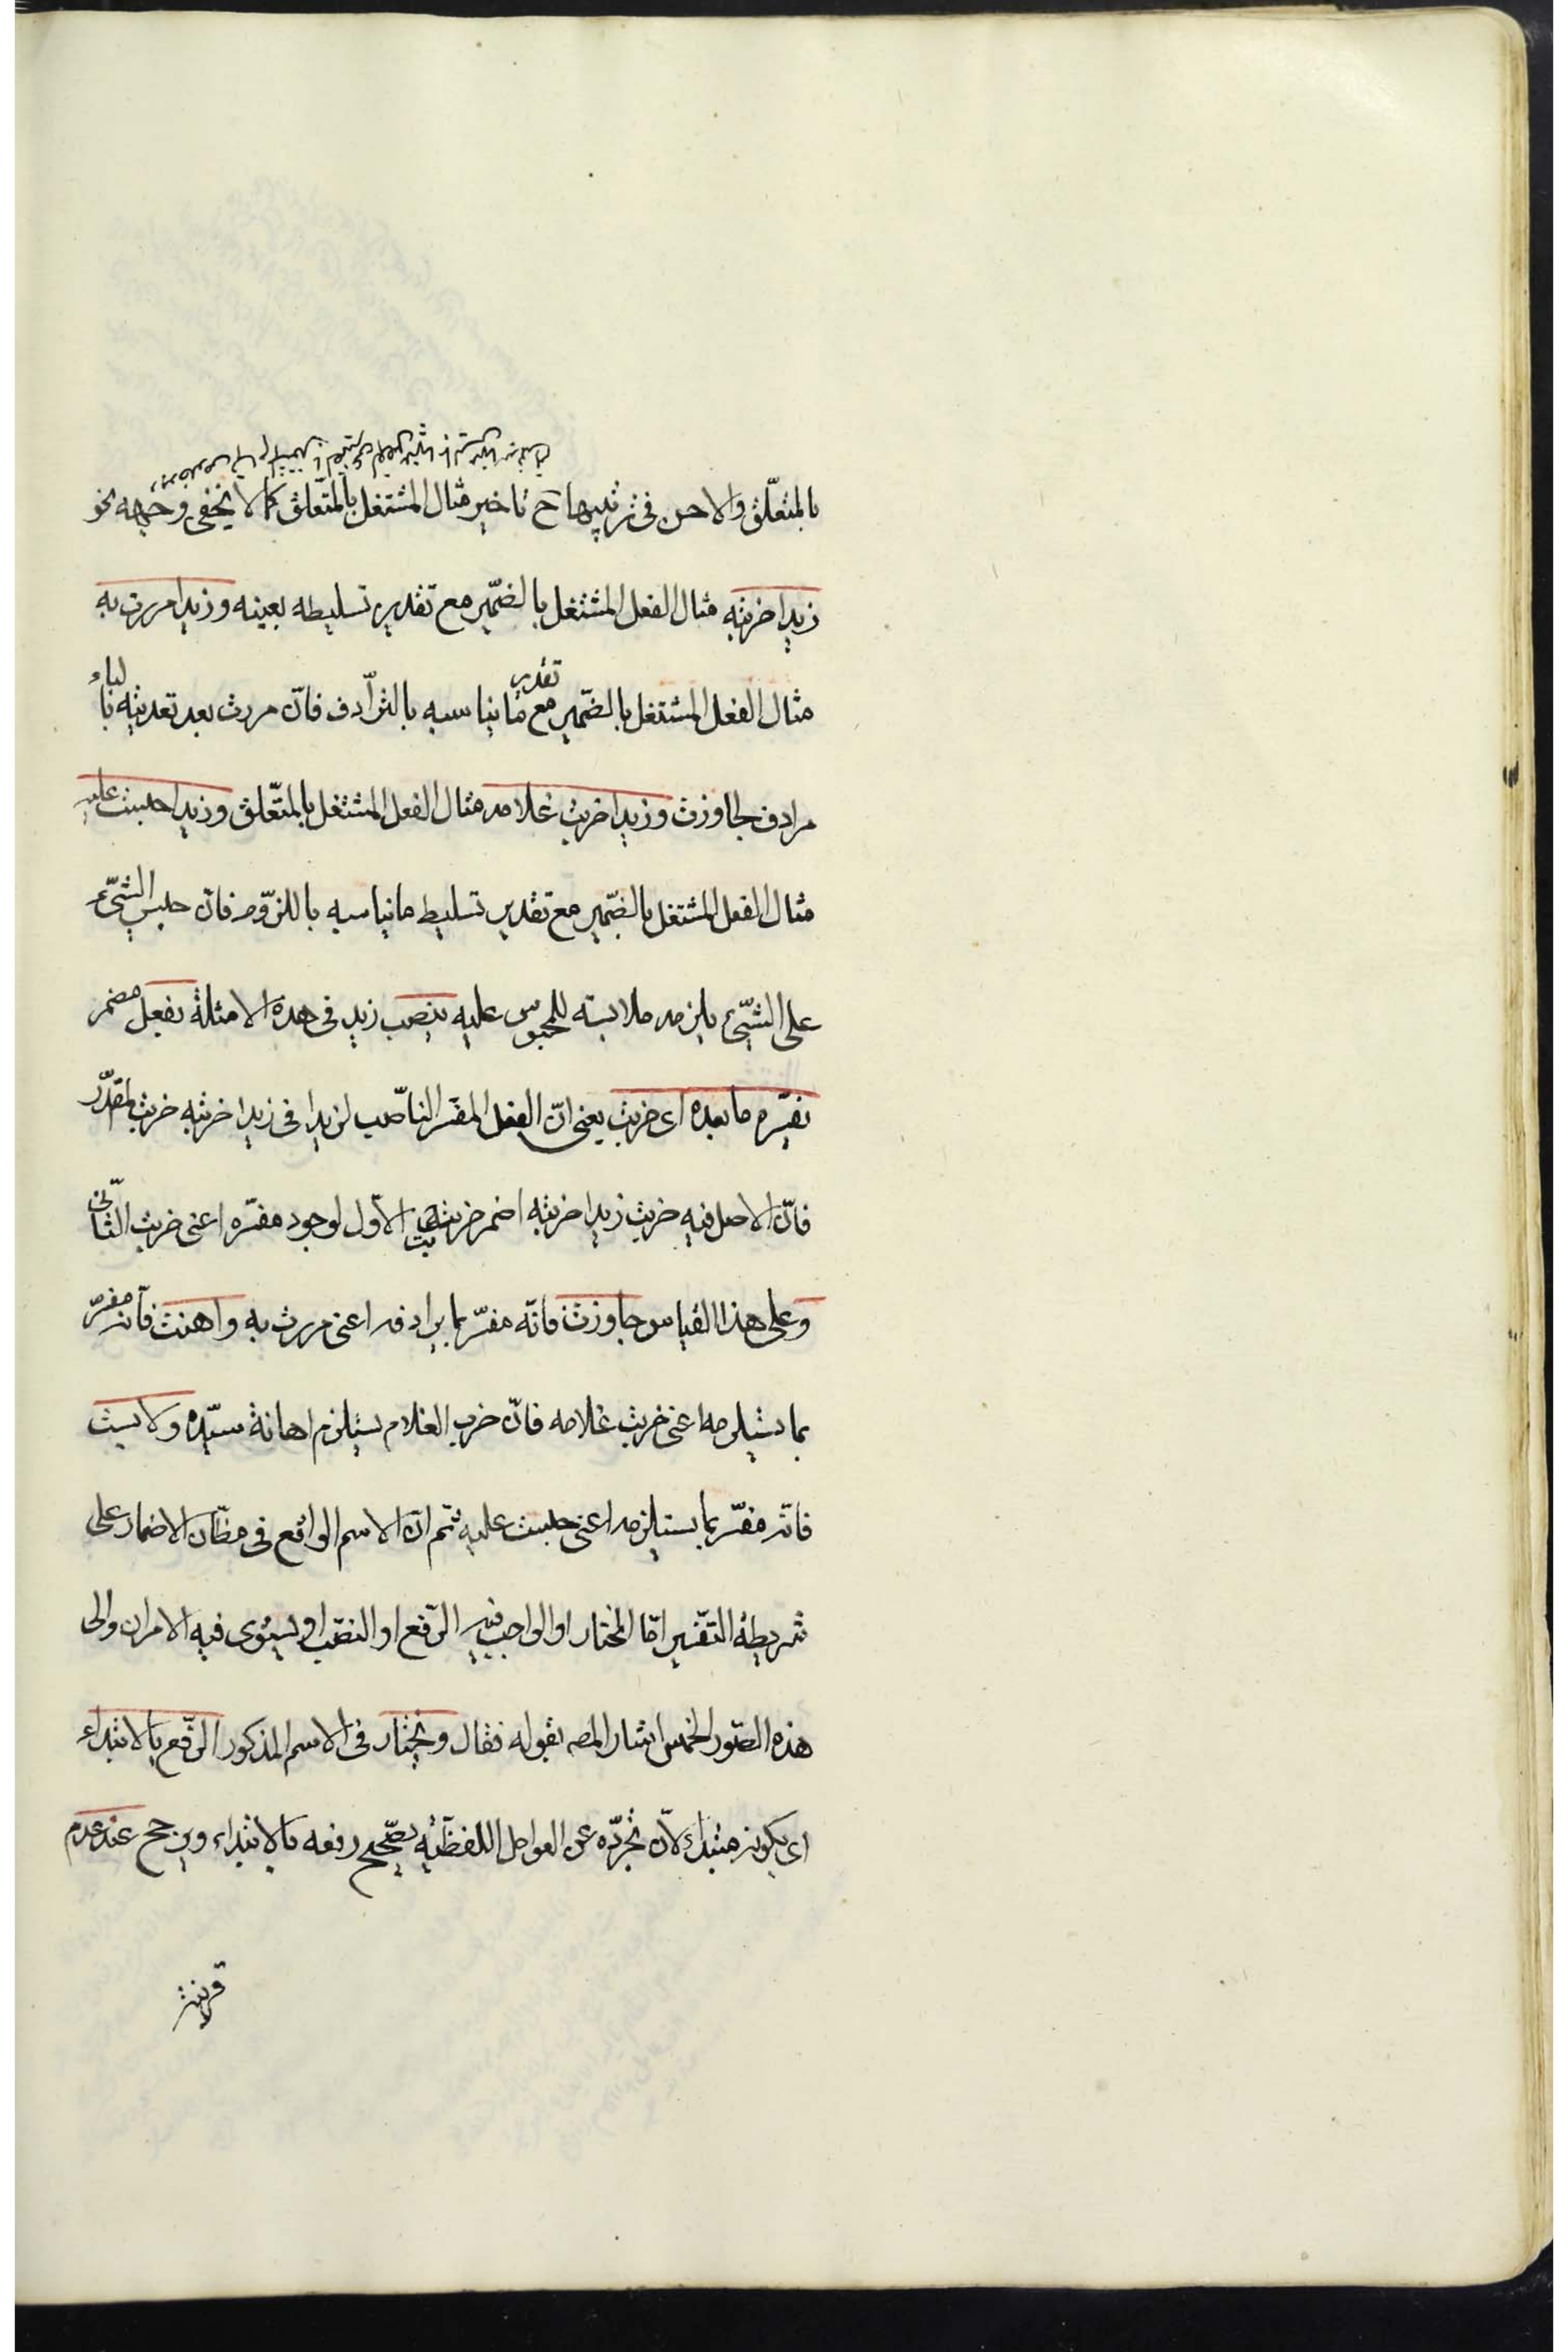 بالمتعلّق والاحسن فى ترتيبها ح تاخير مثال المشتغل بالمتعلّق كما لا يخفى وجهه نحو
زيدا ضربته مثال الفعل المشتغل بالضمّير مع تقدير تسليطه بعينه وزيدا مررت به
مثال الفعل المشتغل بالضمّير مع تقدير ما يناسبه بالترّادف فانّ مررت بعد تعديته بالباء
مرادف لجاوزت وزيدا ضربت غلامه مثال الفعل المشتغل بالمتعّلق وزيدا حبست عليه
مثال الفعل المشتغل بالضّمير مع تقدير تسليط ما يناسبه باللزّوم فانّ حبس الشّيء
على الشّيء يلزمه ملابسته للمحبوس عليه ينصب زيد فى هذه الامثلة بفعل مضمر
يفسّره ما بعده اى ضربت يعنى انّ الفعل المفسّر النّاصب لزيدا فى زيدا ضربته ضربت المقدّر
فانّ الاصل فيه ضربت زيدا ضربته اضمر ضربت الاوّل لوجود مفسّره اعنى ضربت الثّانى
وعلى هذا القياس جاوزت فانّه مفسّر بما يرادفه اعنى مررت به واهنت فانّه مفسّر
بما يستلزمه اعنى ضربت غلامه فانّ ضرب الغلام يستلزم اهانة سيّده ولابست
فانّه مفسّر بما يستلزمه اعنى حبست عليه ثمّ انّ الاسم الواقع فى مظانّ الاضمار على
شريطة التفّسير امّا المختار او الواجب فيه الرّفع او النصّب او يستوى فيه الامران والى
هذه الصّور الخمس اشار المصه بقوله فقال ويختار فى الاسم المذكور الرّفع بالابتداء
اى بكونه مبتداء لانّ تجرّده عن العوامل اللفظيّه يصّحح رفعه بالابتداء ويرجح عند عدم
قرينة